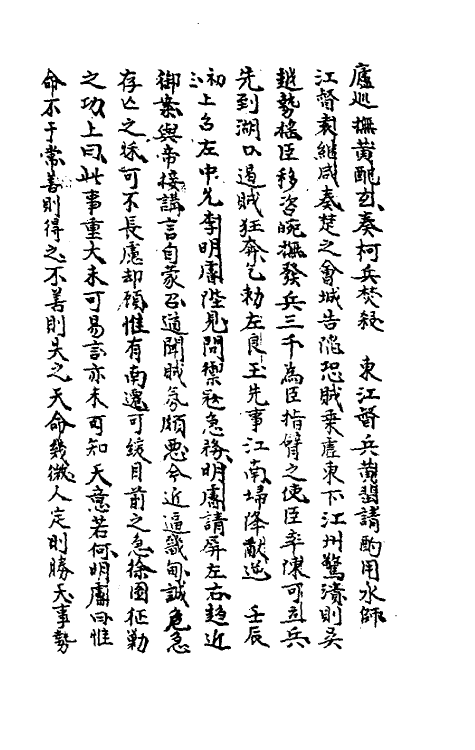 廬巡撫黃配玄奏柯兵焚殺　東江督兵黃蜚請酌用水師
江督袁繼咸奏楚之會城告陷恐賊乘虛東下江州驚潰則吳
越勢搖臣移咨皖撫發兵三千為臣指臂之使臣率陳可立兵
先到湖口遏賊狂奔乞勑左良玉先事江南埽降獻逆　壬辰
初上召左中允李明睿陛見問禦寇急務明睿請屏左右趨近
御案與帝接講言自蒙召道聞賊氛頗惡今近逼畿甸誠危急
存亡之秋可不長慮却顧惟有南遷可緩目前之急徐圖征勦
之功上曰此事重大未可易言亦未可知天意若何明睿曰惟
命不于常善則得之不善則失之天命幾微人定則勝天事勢